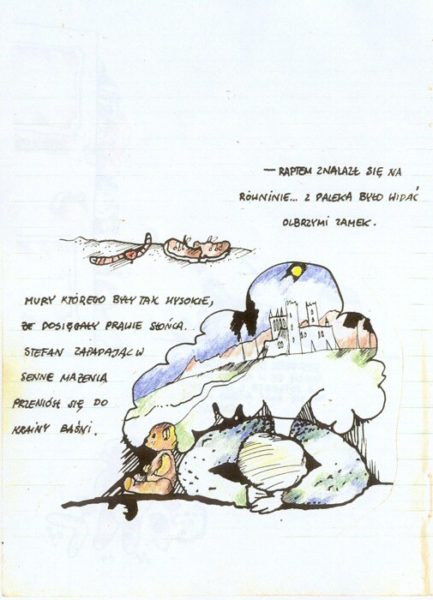 — RAPTEM ZNALAZŁ SIĘ NA
RÓWNINIE... Z DALEKA BYŁO WIDAĆ
OLBRZYMI ZAMEK.
MURY KTÓREGO BYŁY TAK WYSOKIE,
ŻE DOSIĘGAŁY PRAWIE SŁOŃCA.
STEFAN ZAPADAJĄC W
SENNE MAŻENIA
PRZENIÓSŁ SIĘ DO
KRAINY BAŚNI.